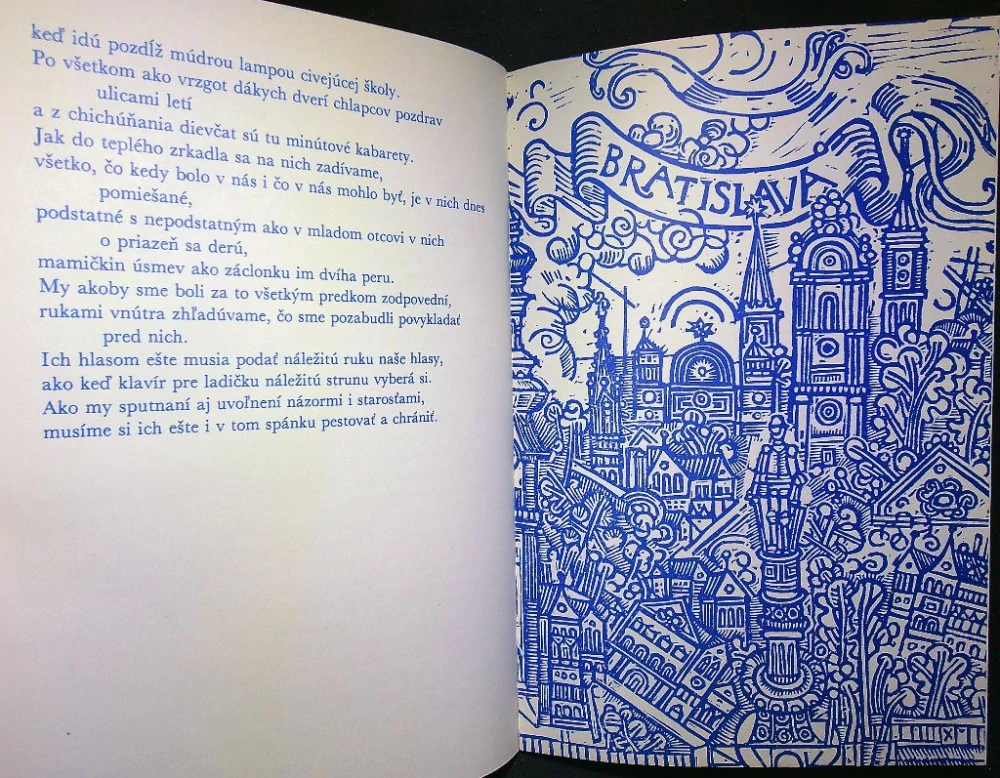 keď idú pozdĺž múdrou lampou civejúcej školy.
Po všetkom ako vrzgot dákych dverí chlapcov pozdrav
ulicami letí
a z chichúňania dievčat sú tu minútové kabarety.
Jak do teplého zrkadla sa na nich zadívame,
všetko, čo kedy bolo v nás i čo v nás mohlo byť, je v nich dnes
pomiešané,
podstatné s nepodstatným ako v mladom otcovi v nich
o priazeň sa derú,
mamičkin úsmev ako záclonku im dvíha peru.
My akoby sme boli za to všetkým predkom zodpovední,
rukami vnútra zhľadúvame, čo sme pozabudli povykladať
pred nich.
Ich hlasom ešte musia podať náležitú ruku naše hlasy,
ako keď klavír pre ladičku náležitú strunu vyberá si.
Ako my sputnaní aj uvoľnení názormi i starosťami,
musíme si ich ešte i v tom spánku pestovať a chrániť.
BRATISLAVA